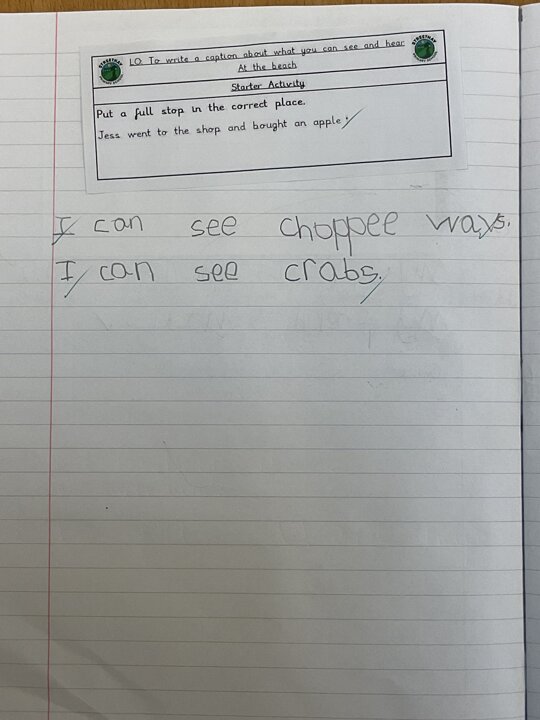 LO: To write a caption about what you can see and hear
At the beach
Starter Activity
Put a full stop in the correct place.
Jess went to the shop and bought an apple.
I can see choppee ways.
I can see crabs.